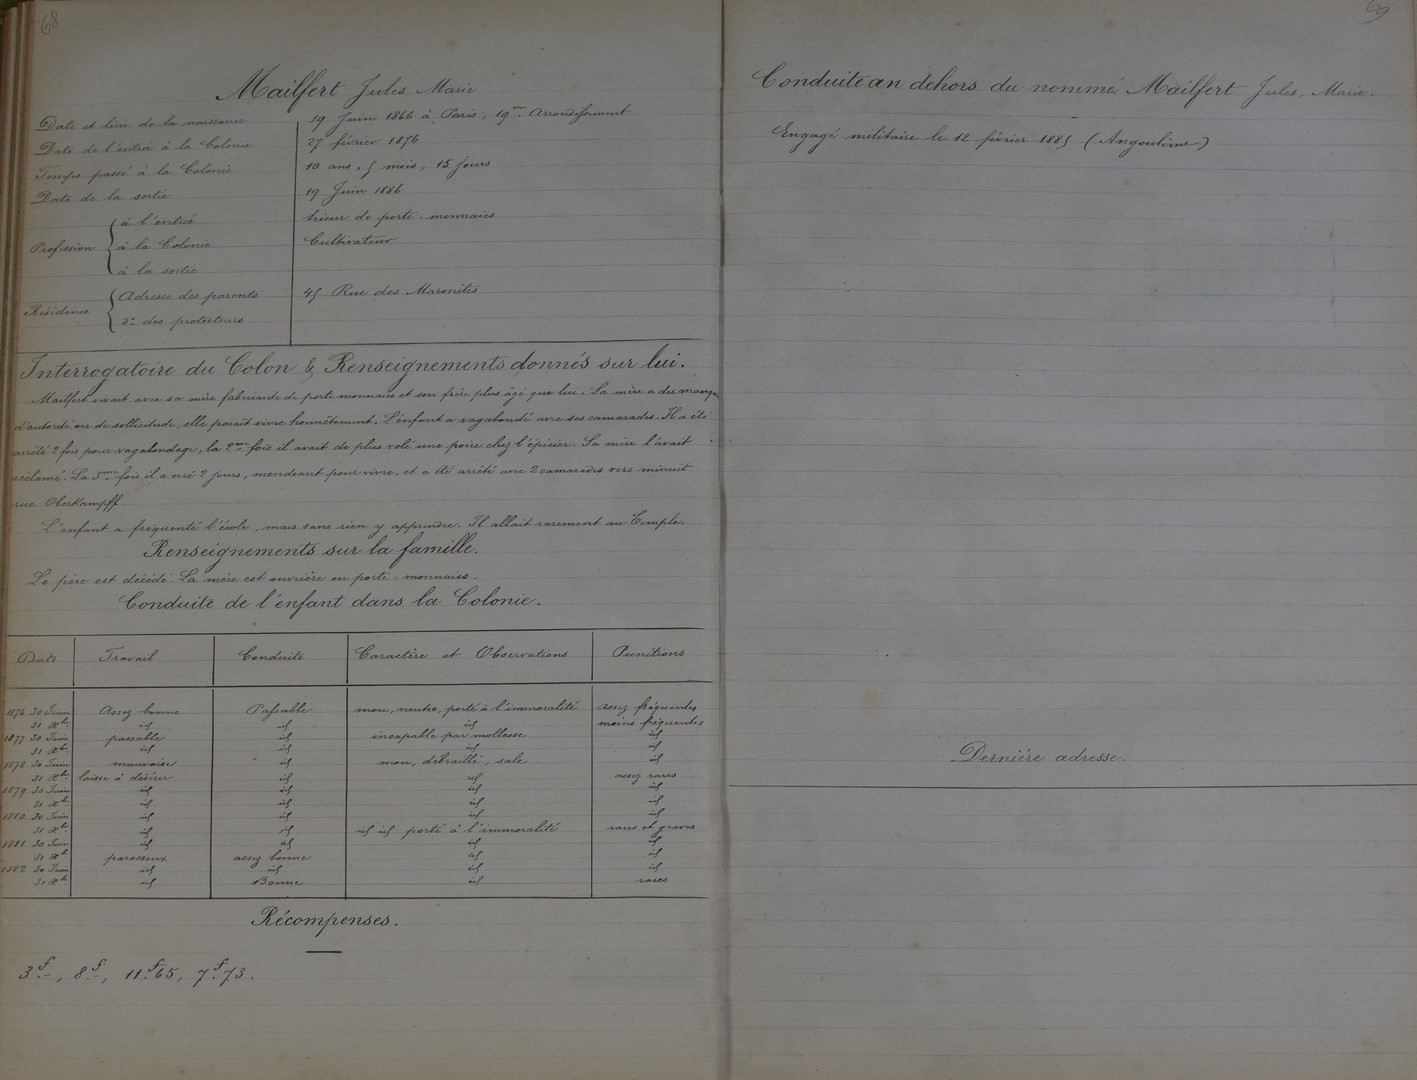 68
Mailfert Jules Marie
Date et lieu de la naissance 19 Juin 1866 à Paris, 19me Arrondissement
Date de l'entrée à la Colonie 27 février 1876
Temps passé à la Colonie 10 ans, 5 mois, 15 jours
Date de la sortie 19 Juin 1886
Profession
à l'entrée trieur de porte-monnaies
à la Colonie Cultivateur
à la sortie
Résidence
Adresse des parents 45 Rue des Maronites
do des protecteurs
Interrogatoire du Colon & Renseignements donnés sur lui.
Mailfert vivait avec sa mère fabricante de porte monnaies et son frère plus âgé que lui. La mère a du manquer
d'autorité ou de sollicitude, elle parait vivre honnêtement. L'enfant a vagabondé avec ses camarades. Il a été
arrêté 2 fois pour vagabondage, la 2me fois il avait de plus volé une poire chez l'épicier. Sa mère l'avait
réclamé. La 3me fois il a erré 2 jours, mendiant pour vivre, et a été arrêté avec 2 camarades vers minuit
rue Oberkampff.
L'enfant a fréquenté l'école, mais sans rien y apprendre. Il allait rarement au Temple.
Renseignements sur la famille.
Le père est décédé. La mère est ouvrière en porte-monnaies.
Conduite de l'enfant dans la Colonie.
Date Travail Conduite Caractère et Observations Punitions
1876 30 Juin Assez bonne Passable mou, neutre, porté à l'immoralité assez fréquentes
31 Xbre id id id moins fréquentes
1877 30 Juin passable id incapable par mollesse id
31 Xbre id id id id
1878 30 Juin mauvaise id mou, débraillé, sale id
31 Xbre laisse à désirer id id assez rares
1879 30 Juin id id id id
31 Xbre id id id id
1880 30 Juin id id id id
31 Xbre id id id id porté à l'immoralité rares et graves
1881 30 Juin id id id id
31 Xbre paresseux assez bonne id id
1882 30 Juin id id id id
31 Xbre id Bonne id rares
Récompenses.
3f-, 8f-, 11f65, 7f73.
69
Conduite au dehors du nommé Mailfert Jules, Marie.
Engagé militaire le 12 février 1885 (Angoulême)
Dernière adresse.